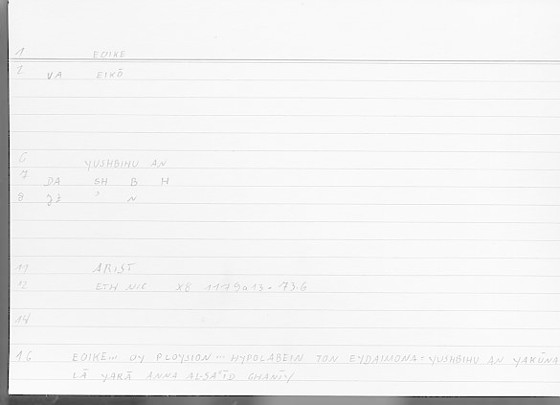 1 EOIKE
2 VA EIKŌ
6 YUSHBIHU AN
7 DA SH B H
8 ʾ N
11 ARIST
12 ETH NIC X8 1179a13 73.6
14
16 EOIKE... OY PLOYSION... HYPOLABEIN TON EYDAIMONA = YUSHBIHU AN YAKŪNA
LĀ YARĀ ANNA AL-SAʿĪD GHANĪY